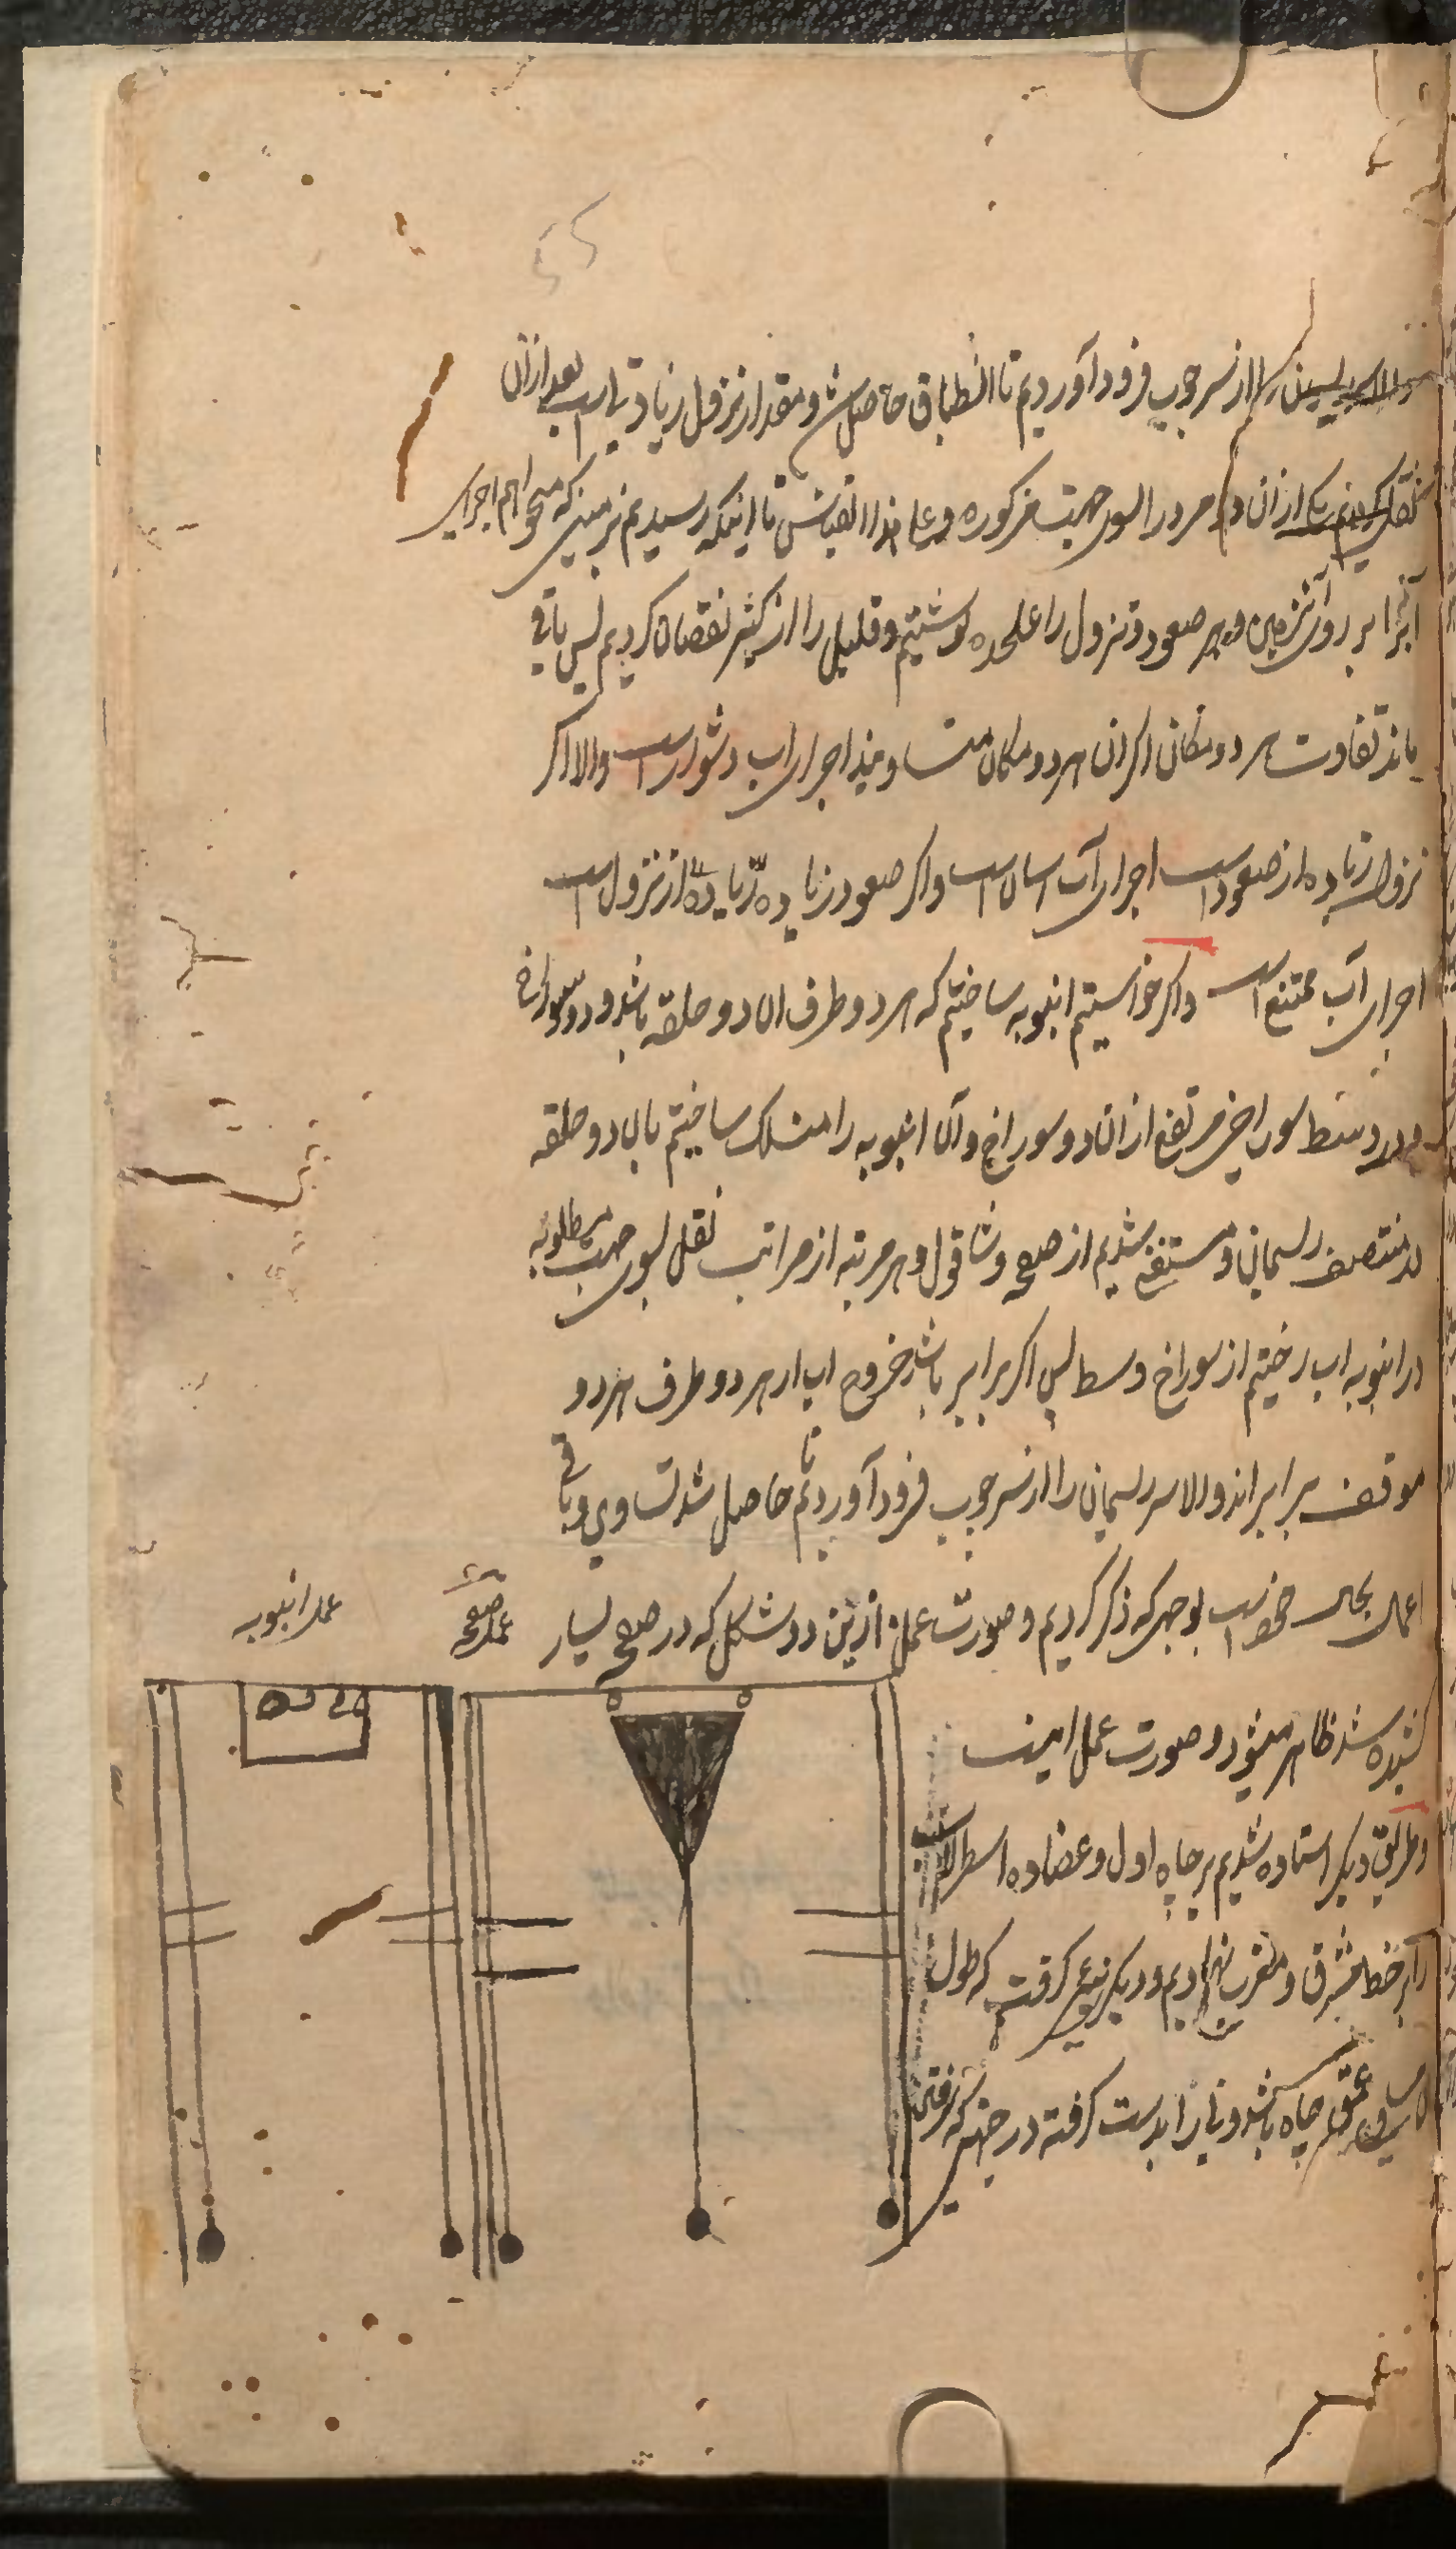 والا ریسمان را از سر چوب فرود آوردیم تا انطباق حاصل شد و مقدار نزول زیادتی است بعد از آن
نقل کردیم یکی از ان دو مرد را بسوی جهت مذکوره و علی هذا القیاس تا اینکه رسیدیم بزمینی که میخواهیم اجرای
آبرا بر روی آنزمین و هر صعود و نزول را علحده نوشتیم و قلیل را از کثیر نقصان کردیم پس باقی
ماند تفاوت هر دو مکان اکر ان هر دو مکان متساویند اجرای اب دشوار است والا اکر
نزول زیاده از صعود است اجرای آب اسان است واکر صعود زیاده زیاده از نزول است
اجرای آب ممتنع است واکر خواستیم انبوبه ساختیم که هر دو طرف ان دو حلقه باشد و دو سوراخ
و در وسط سوراخی مرتفع از ان دو سوراخ و آن انبوبه را منسلک ساختیم بان دو حلقه
در منتصف ریسمان و مستغنی شدیم از صفحه و شاقول و هر مرتبه از مراتب نقل بسوی جهت مطلوبه
در انبوبه اب ریختیم از سوراخ وسط پس اکر برابر باشد خروج اب از هر دو طرف هر دو
موقف برابراند والا سر ریسمان را از سر چوب فرود آوردیم تا حاصل شد تساوی و باقی
اعمال بحال خود است بوجهی که ذکر کردیم و صورت عمل ازین دو شکل که در صفحه یسار
عمل صفحه
عمل انبوبه
کشیده شد ظاهر میشود و صورت عمل اینست
و طریق دیکر استاده شدیم بر چاه اول و عضاده اسطرلاب
را بر خط مشرق و مغرب نهادیم و دیکر نیی کرفت که طول
ان مساوی عمق چاه باشد و نی را بدست کرفته در جهتی که رفتن